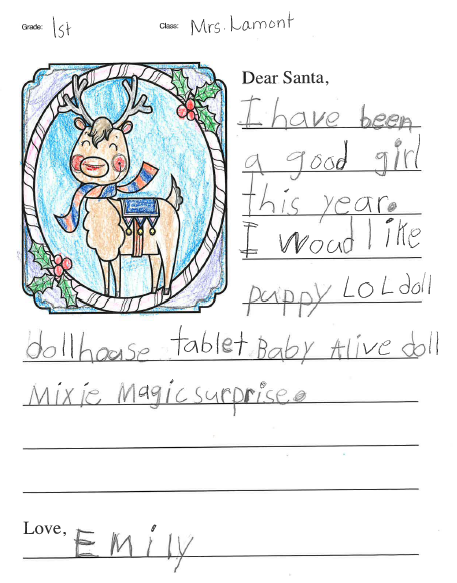 Grade: 1st Class: Mrs. Lamont
Dear Santa,
I have been
a good girl
this year.
I woud like
puppy LOL doll
dollhouse tablet Baby Alive doll
Mixie Magic surprise.
Love, Emily